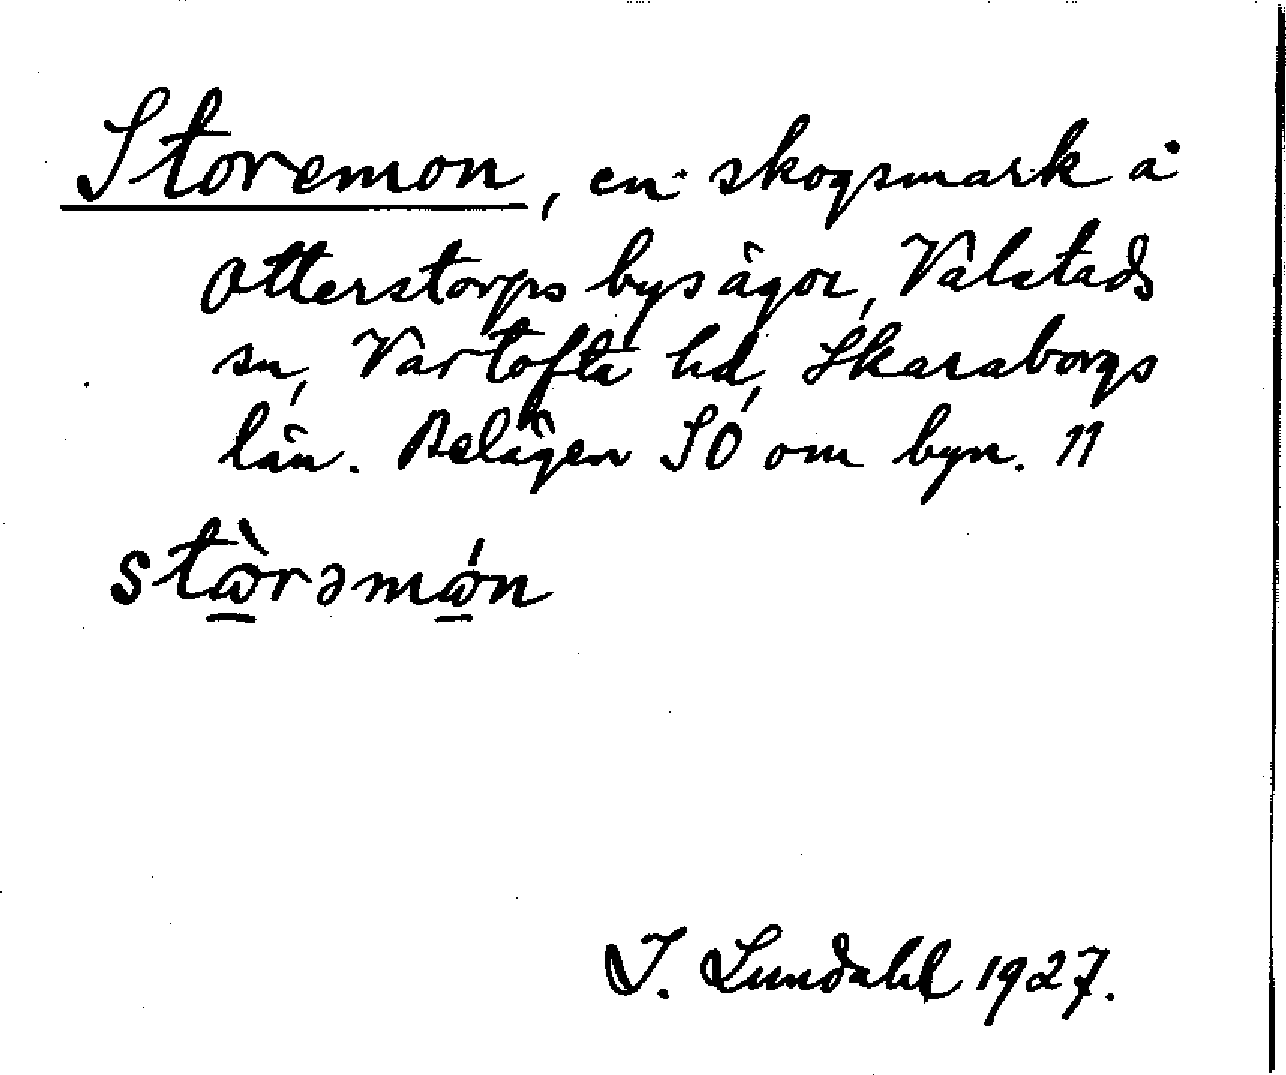 Storemon, en skogsmark å
Otterstorps bys ägor, Vålstads
sn, Vartofta hd, Skaraborgs
län. Belägen SÖ om byn. 11
stὼrəmώn
I. Lundahl 1927.